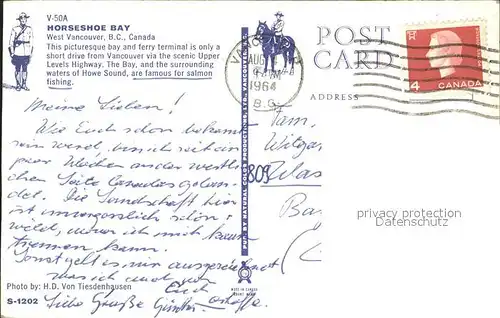 V-50A
HORSESHOE BAY
West Vancouver, B.C., Canada
This picturesque bay and ferry terminal is only
a short drive from Vancouver via the scenic Upper
Levels Highway. The Bay, and the surrounding
waters of Howe Sound, are famous for salmon
fishing.
Meine Lieben!
Wie Euch schon bekannt
sein wird, bin ich seit ein
paar Wochen an der westli-
chen Seite Canadas gelan-
det. Die Landschaft hier
ist schön &
wild, mich kaum
trennen kann.
Sonst geht es mir ausgezeichnet
was ich auch von
Euch
Liebe Grüße Günter hoffe.
Photo by: H.D. Von Tiesdenhausen
S-1202
PUB. BY NATURAL COLOR PRODUCTIONS, LTD. VANCOUVER,
MADE IN CANADA
POST
CARD
ADDRESS
VANCOUVER
AUG
PM
1964
B.C.
4
CANADA
Fam.
809
privacy protection
Datenschutz